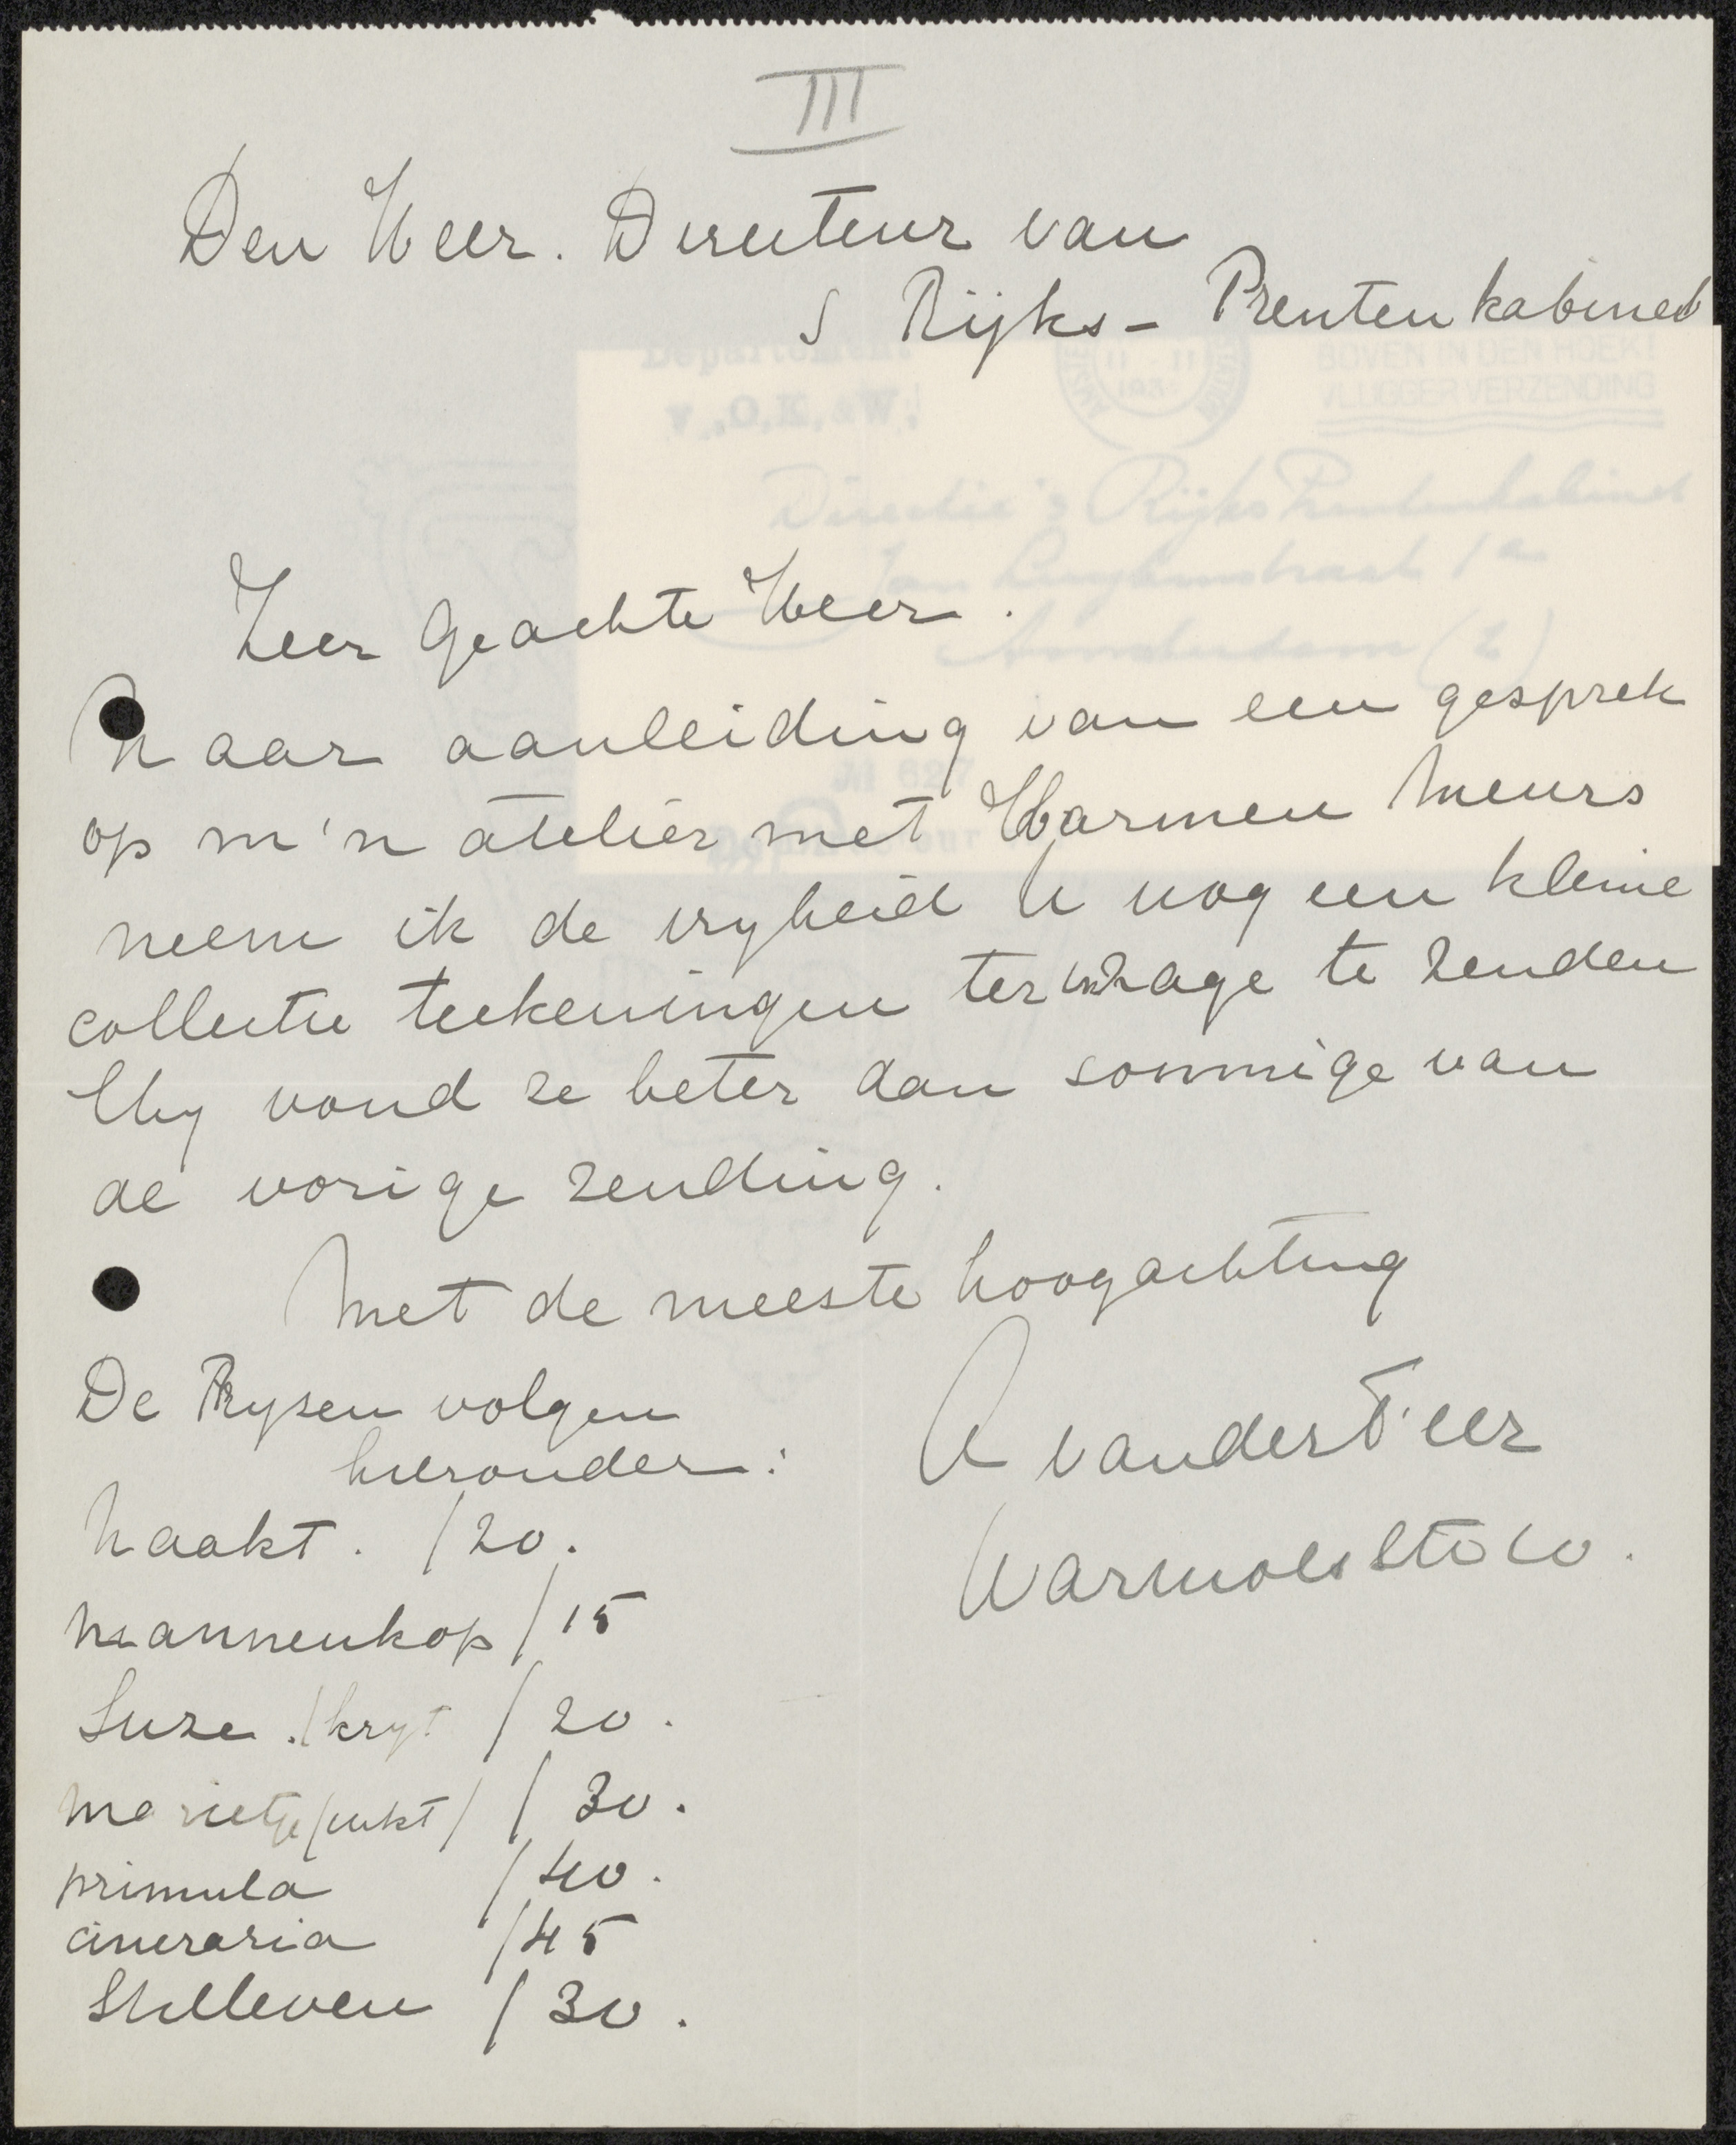 III
Den Heer. Directeur van
s Rijks - Prentenkabinet
Zeer Geachte Heer.
Naar aanleiding van een gesprek
op m'n atelier met Harmen Meurs
neem ik de vryheid U nog een kleine
collectie teekeningen ter inzage te zenden
Hy vond ze beter dan sommige van
de vorige zending.
Met de meeste hoogachting
De Prysen volgen
hieronder:
A van der Feer
Warmolsstr 10.
Naakt. / 20.
Mannenkop / 15
Suze ./kryt / 20.
Marietje /inkt/ / 30.
primula / 40.
cineraria / 45
Stilleven / 30.
Departement
v. O.K. & W.
BOVEN IN DEN HOEK!
VLUGGER VERZENDING
Directie 's Rijks Prentenkabinet
Jan Luykenstraat 1a
Amsterdam (Z)